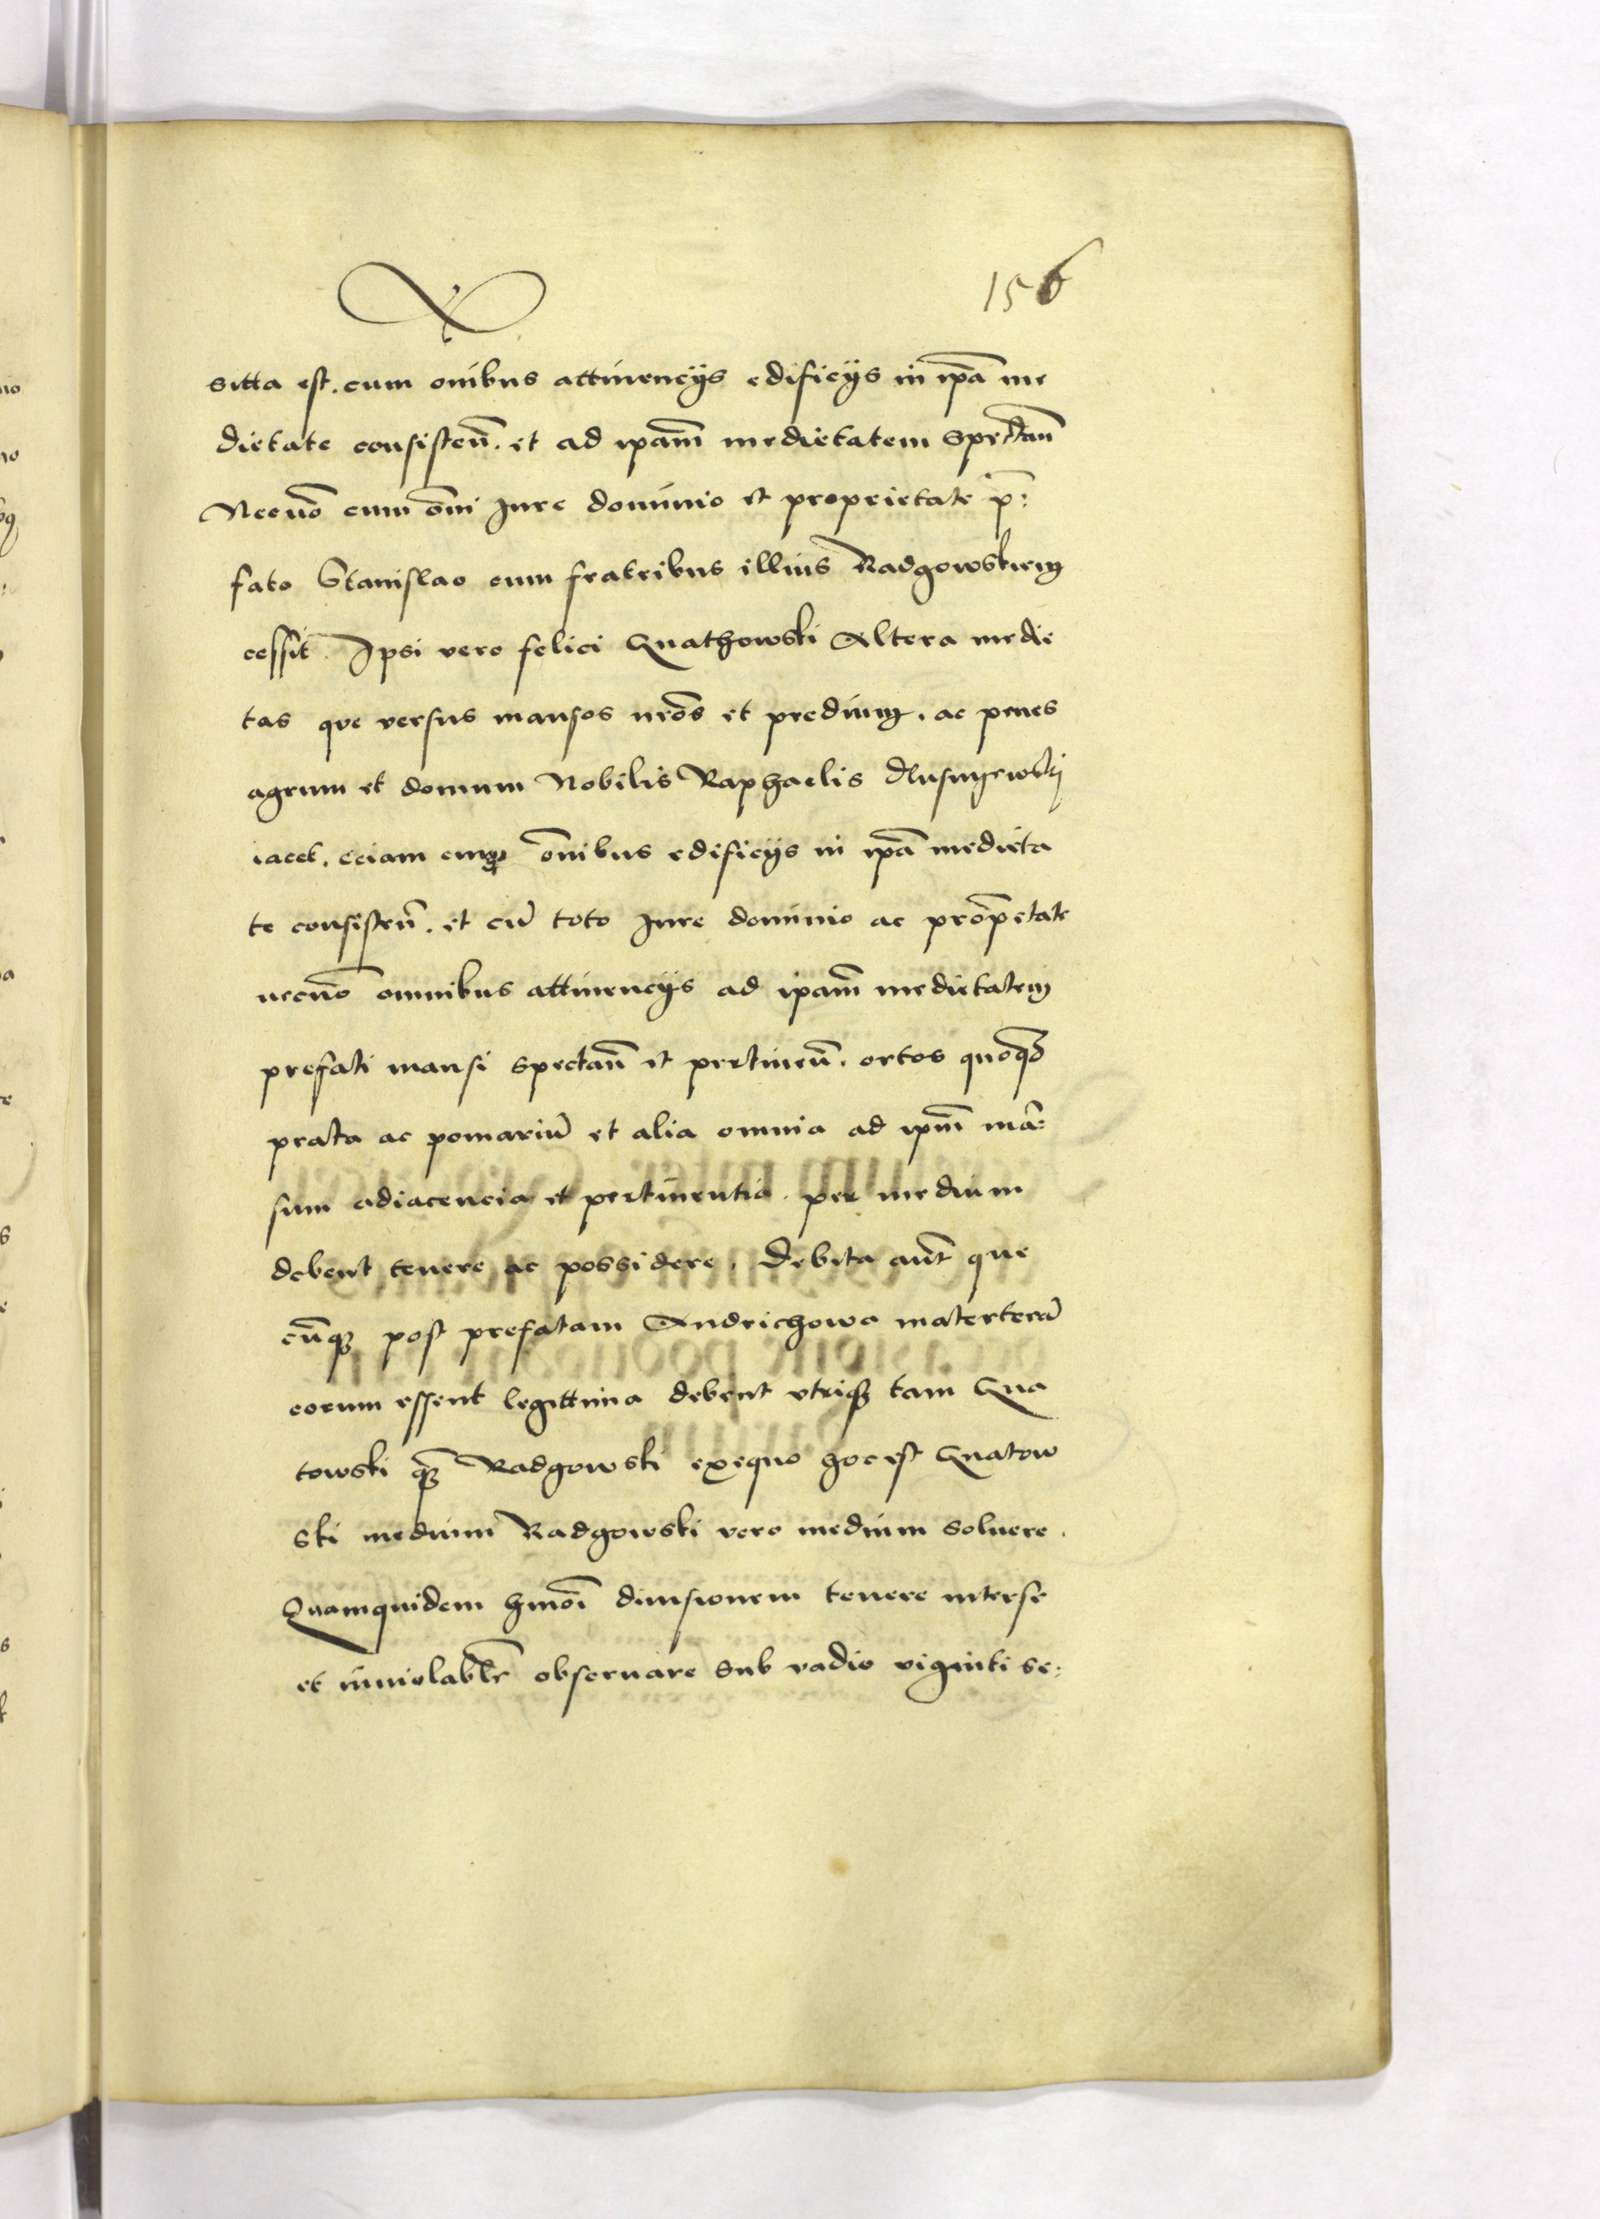 156
sitta est. cum onibus attinencijs edificijs in ip̄a me
dietate consisteñ. et ad ipam̄ medietatem spectan̄
Necnō cum om̄i Jure dominio et proprietate p̄:
fato Stanislao cum fratribus illius Radgowskiem
cessit. Ipsi vero felici Gnathowski Altera medie
tas que versus mansos nr̄os et predium. ac penes
agrum et domum Nobilis Raphaelis
iacet. eciam cum om̄ibus edificijs in ip̄a medieta
te consisten̄. et cū toto Jure dominio ac prop̄etate
necnō omnibus attinencijs ad ipam̄ medietatem
prefati mansi spectan̄ et pertinen̄. ortos quoqȝ
prata ac pomariū et alia omnia ad ipm̄ mā:
sum adiacencia et pertinentia. per medium
debent tenere ac possidere. Debita aut̄ que
cūqȝ post prefatam Andrichowa materterā
eorum essent legittima debent vtriqȝ tam Gna
towski qȝ Radgowski exequo hoc est Gnatow
ski medium Radgowski vero medium soluere.
Quamquidem hmōi diuisionem tenere interse
et inuiolabl̄r obseruare sub vadio viginti se: